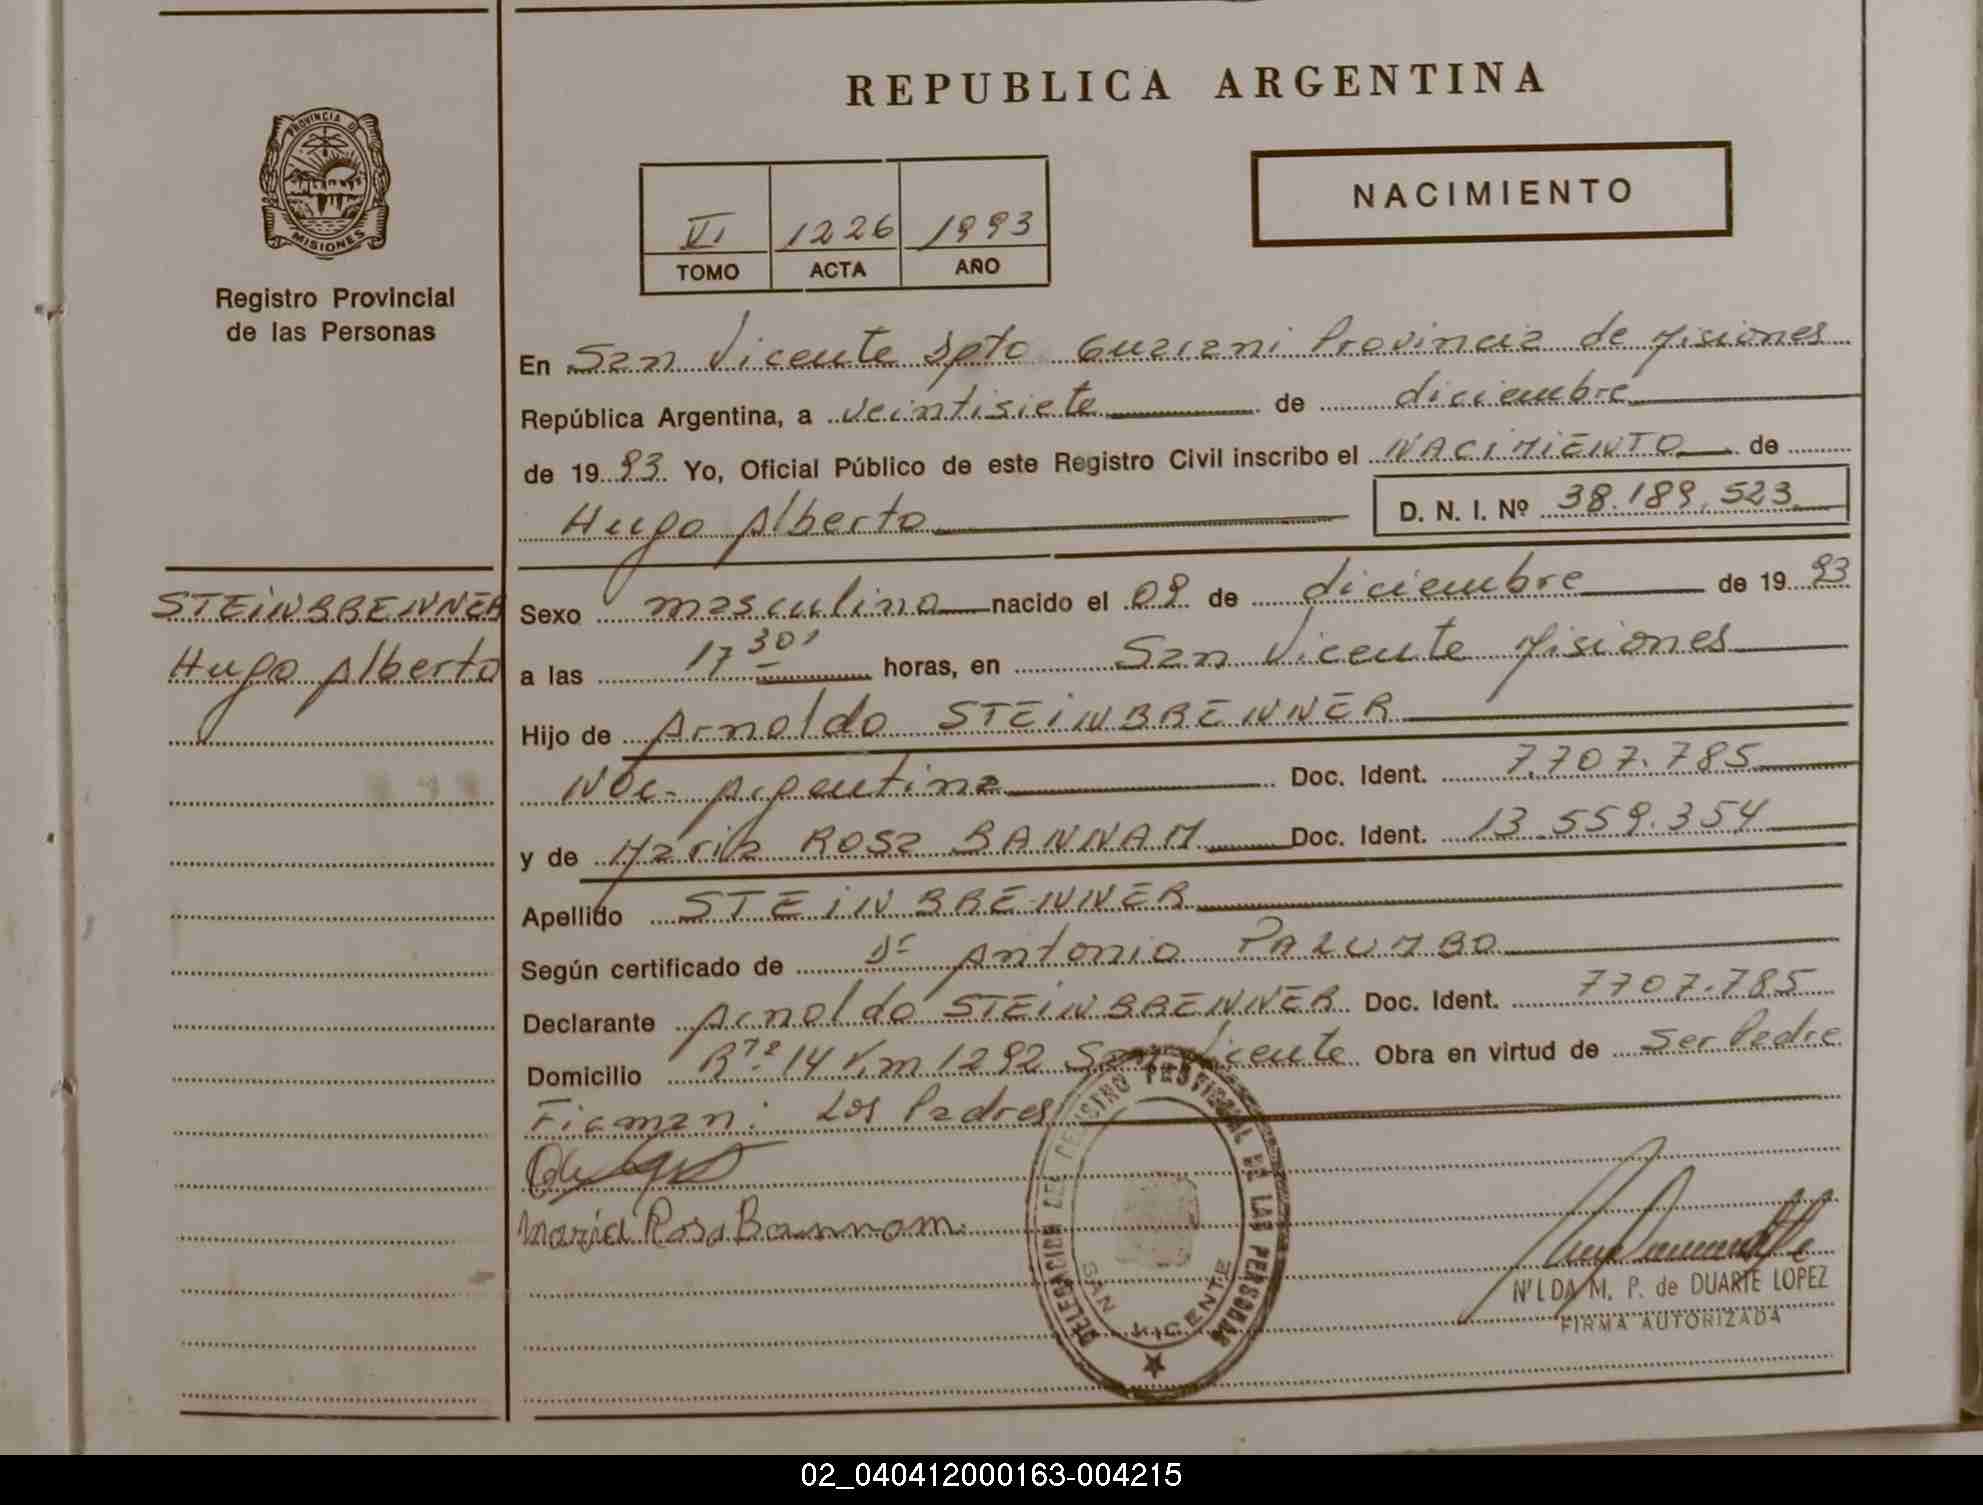 REPUBLICA ARGENTINA
PROVINCIA DE
MISIONES
Registro Provincial
de las Personas
NACIMIENTO
VI 1226 1993
TOMO ACTA AÑO
En San Vicente Dpto Guarani Provincia de Misiones
República Argentina, a veintisiete de diciembre
de 1993 Yo, Oficial Público de este Registro Civil inscribo el NACIMIENTO de
Hugo Alberto D. N. I. Nº 38.189.523
STEINBRENNER
Hugo Alberto
Sexo masculino nacido el 09 de diciembre de 1993
a las 17 30' horas, en San Vicente Misiones
Hijo de Arnoldo STEINBRENNER
Nac. Argentina Doc. Ident. 7.707.785
y de Maria ROSA BANNAM Doc. Ident. 13.559.354
Apellido STEINBRENNER
Según certificado de Dr Antonio PALUMBO
Declarante Arnoldo STEINBRENNER Doc. Ident. 7707.785
Domicilio Rta. 14 Km 1292 San Vicente Obra en virtud de ser Padre
Firman: Los Padres
Maria Rosa Bannam
DELEGACION DEL REGISTRO PROVINCIAL DE LAS PERSONAS
SAN VICENTE
NILDA M. P. de DUARTE LOPEZ
FIRMA AUTORIZADA
02_040412000163-004215